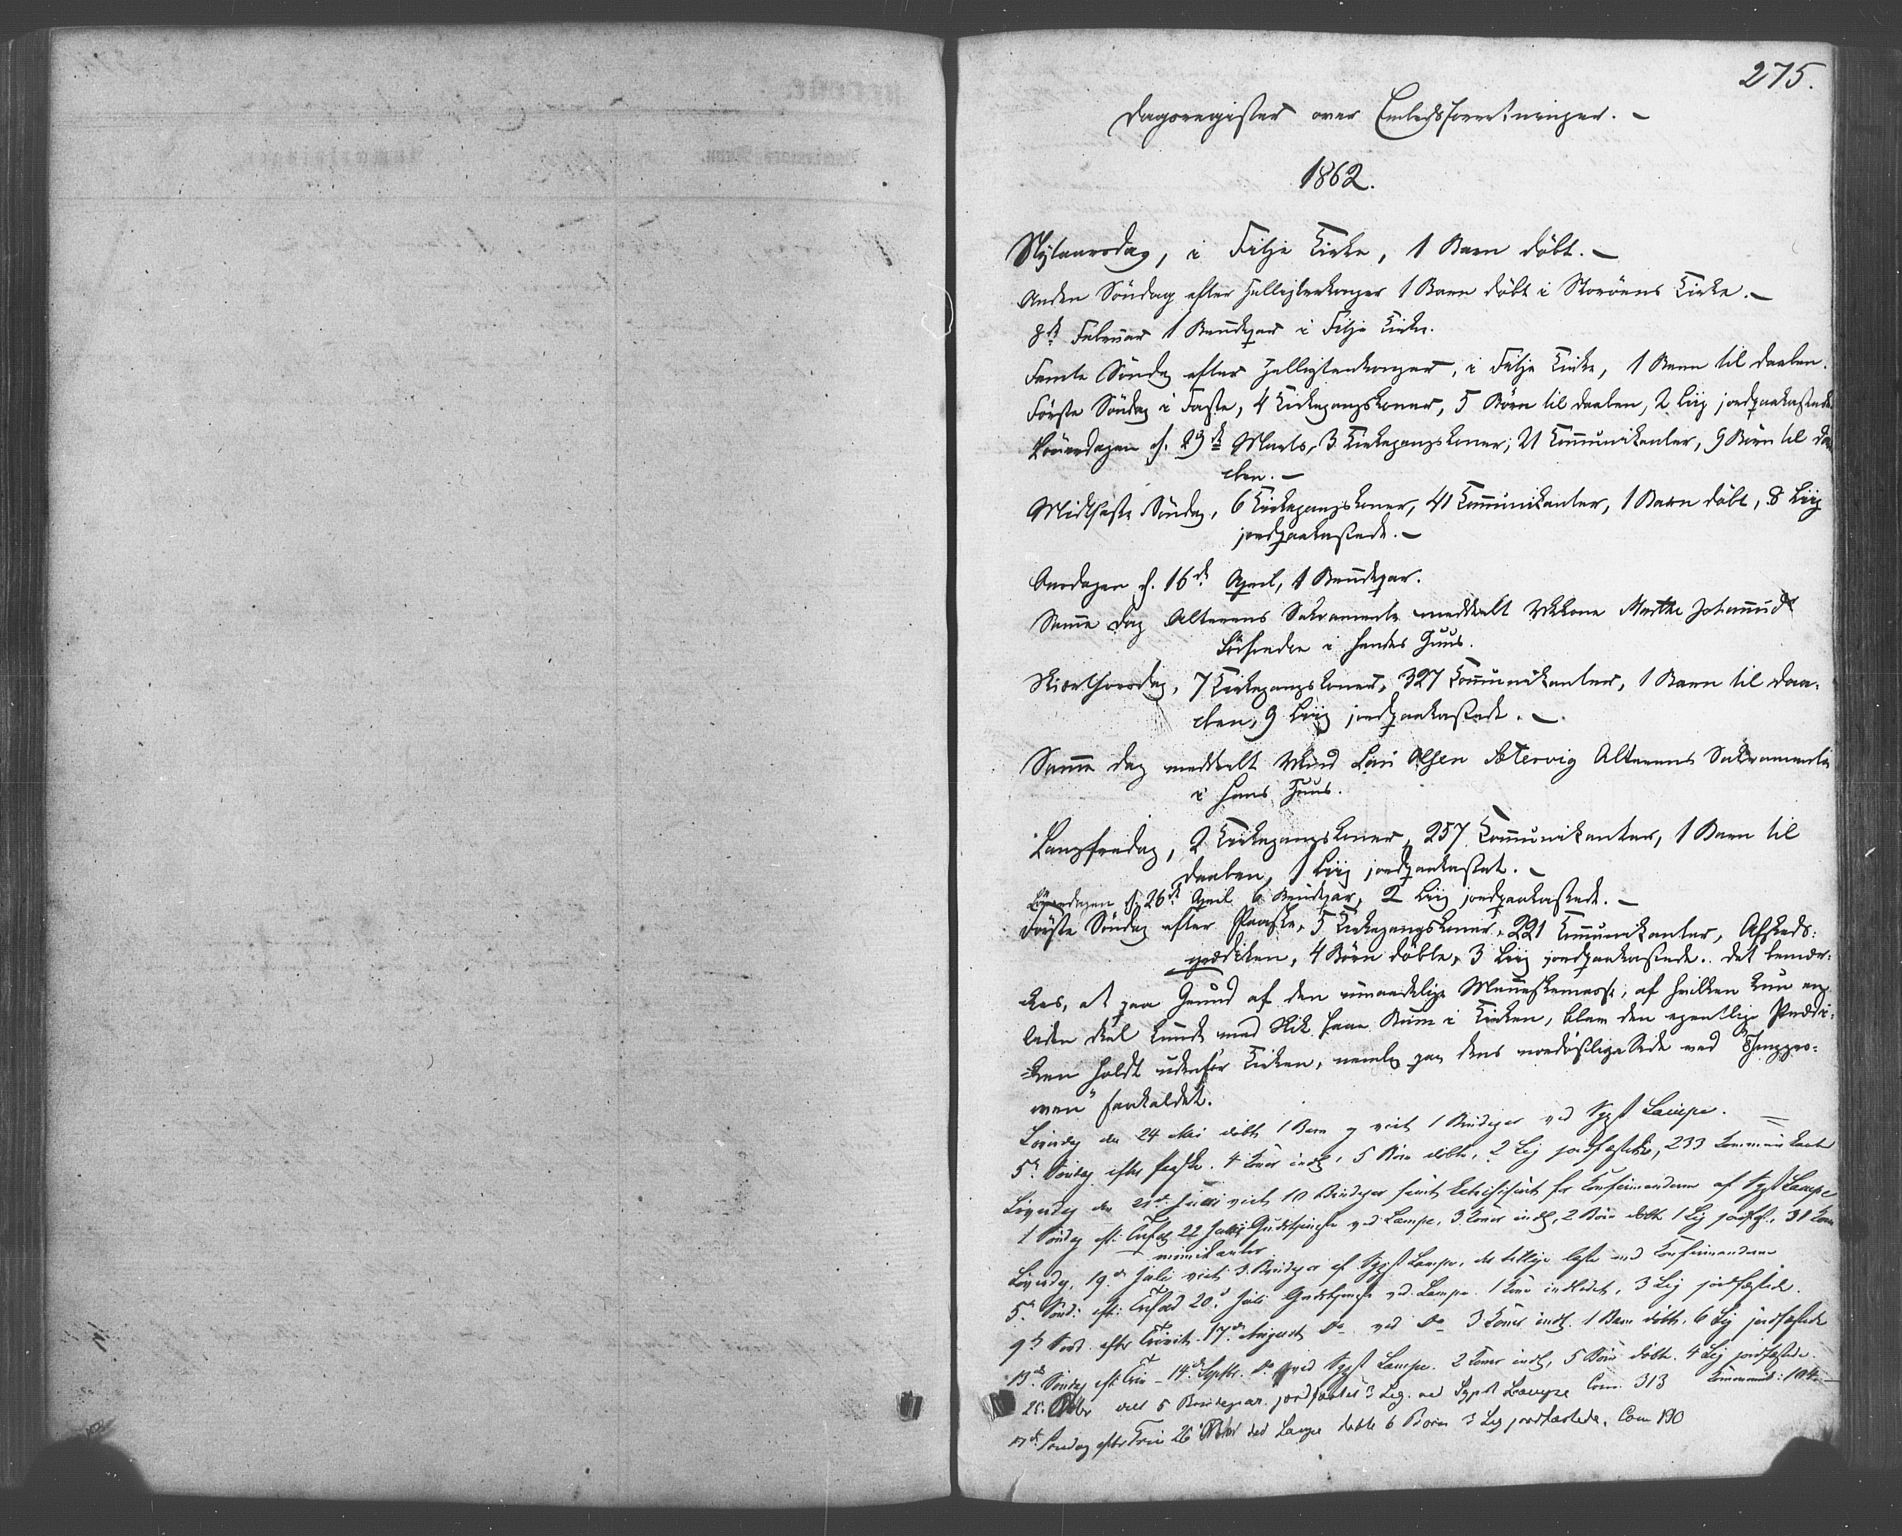 275.
Dagsregister over Embedsforretninger. –
1862.
Nytaarsdag, i Fitje Kirke, 1 Barn døbt. –
Anden Søndag efter Helligtrekonger 1 Barn døbt i Storøens Kirke. –
8de Februar 1 Brudepar i Fitje Kirke.
Femte Søndag efter Helligtrekonger, i Fitje Kirke, 1 Barn til Daaben.
Første Søndag i Faste, 4 Kirkegangskoner, 5 Børn til Daaben, 2 Liig jordpaakastede
Løverdagen d. 29de Marts, 3 Kirkegangskoner, 21 Communikanter, 9 Børn til Da
ben. –
Midtfaste Søndag, 6 Kirkegangskoner, 41 Communikanter, 1 Barn døbt, 8 Liig
jordpaakastede. –
Onsdagen d. 16de April, 1 Brudepar.
Samme Dag Alterens Sakramente meddelt Marthe Johannisd
i hendes Huus.
Skiærthorsdag, 7 Kirkegangskoner, 327 Communikanter, 1 Barn til Daa-
ben, 9 Liig jordpaakastede. –
Samme Dag meddelt Olsen Sætervig Alterens Sakramente
i hans Huus.
Langfredag, 2 Kirkegangskoner, 257 Communikanter, 1 Barn til
Daaben, 1 Liig jordpaakastet. –
Løverdagen d. 26de April 6 Brudepar, 2 Liig jordpaakastede. –
Første Søndag efter Paaske, 5 Kirkegangskoner, 221 Communikanter, Afskeds-
prædiken, 4 Børn døbte, 3 Liig jordpaakastede. Det bemær-
kes, at paa Grund af den umaadelige Menneskemasse, af hvilken kun en
liden Deel kunde med Nød faae Rum i Kirken, blev den egentlige Prædi-
ken holdt udenfor Kirken, nemlig paa dens nordøstlige Side ved
kaldet.
Løverdag den 24 Mai døbt 1 Barn og viet 1 Brudepar ved Sgpr Lampe.
5te Søndag efter Paaske. 4 Koner indl, 5 Børn døbte, 2 Lig jordfæstede, 233 Kommunikant
Løverdag den 21de Juni viet 10 Brudepar samt for Konfirmanderne af Sgpr Lampe
1 Søndag eft: Trefold 22 Juni Gudstjeneste ved Lampe, 3 Koner indl, 2 Børn døbte 1 Lig jordf., 31 Kom
munikanter
Løverdag, 19de Juli viet 3 Brudepar af Sgpr Lampe, der tillige læste med Konfirmanderne
5te Sønd: eft: Trefold 20de Juli Gudstjeneste ved Lampe. 1 Kone indledet, 3 Lig jordfæstede.
9de Sønd. efter Trinit. 17de August Do ved Do 3 Koner indl. 1 Barn døbt, 6 Lig jordfæstede
13de Søndag eft Trin – 14de Septbr. Do ved Sgpr Lampe. 2 Koner indl, 5 Børn døbte. 4 Lig jordfæstede.
25. viet 5 Brudepar. jordfæstet 3 Lig. ved Sgpr Lampe Com. 313 Kommunik: 104
Søndag efter Trin 26 ved Lampe døbte 6 Børn 3 Lig jordfæstede. Com 130